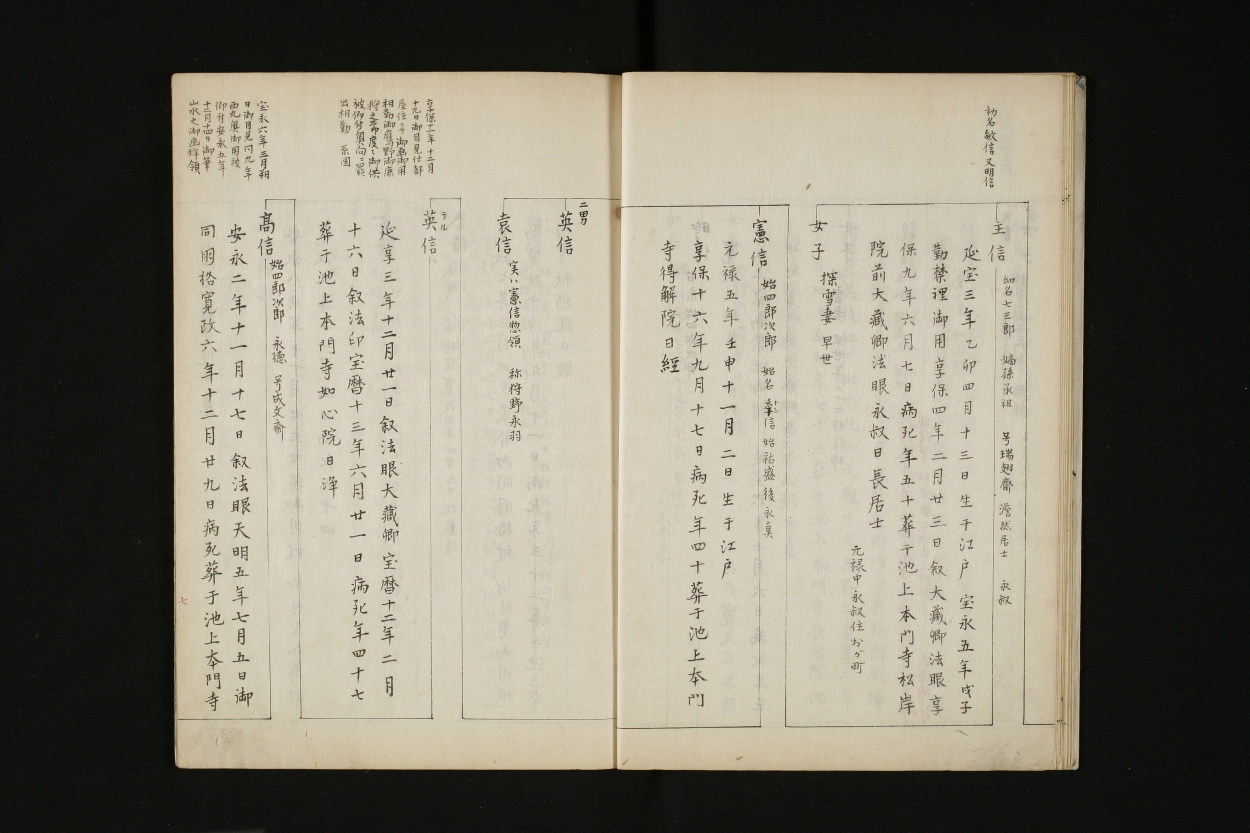 初名敏信又明信
主信
幼名七三郎 嫡孫承祖 号瑞翅齋 澹然居士 永叔
延宝三年乙卯四月十三日生于江戸 宝永五年戊子
勤禁裡御用享保四年二月廿三日叙大藏卿法眼享
保九年六月七日病死年五十葬于池上本門寺松岸
院前大藏卿法眼永叔日長居士
元禄中永叔住おが町
女子
探雪妻早世
憲信
始四郎次郎 始名季信 始祐盛後永真
元禄五年壬申十一月二日生于江戸
享保十六年九月十七日病死年四十葬于池上本門
寺得解院日經
二男
英信
袁信
実ハ憲信惣領 称狩野永羽
享保十一年十二月
十九日御目見仕部
屋住ニテ御画御用
相勤御鷹野御鹿
狩之節度々御供
被仰付奥向ニ罷
出相勤 系図
テル
英信
延享三年十二月廿一日叙法眼大藏卿宝暦十二年二月
十六日叙法印宝暦十三年六月廿一日病死年四十七
葬于池上本門寺如心院日浄
宝永六年三月朔
日御目見同九年
西丸奥御用被
仰付安永五年
十二月十四日御筆
山水之御画拝領
高信
始四郎次郎 永徳 号成文齋
安永二年十一月十七日叙法眼天明五年七月五日御
同朋格寛政六年十二月廿九日病死葬于池上本門寺
七